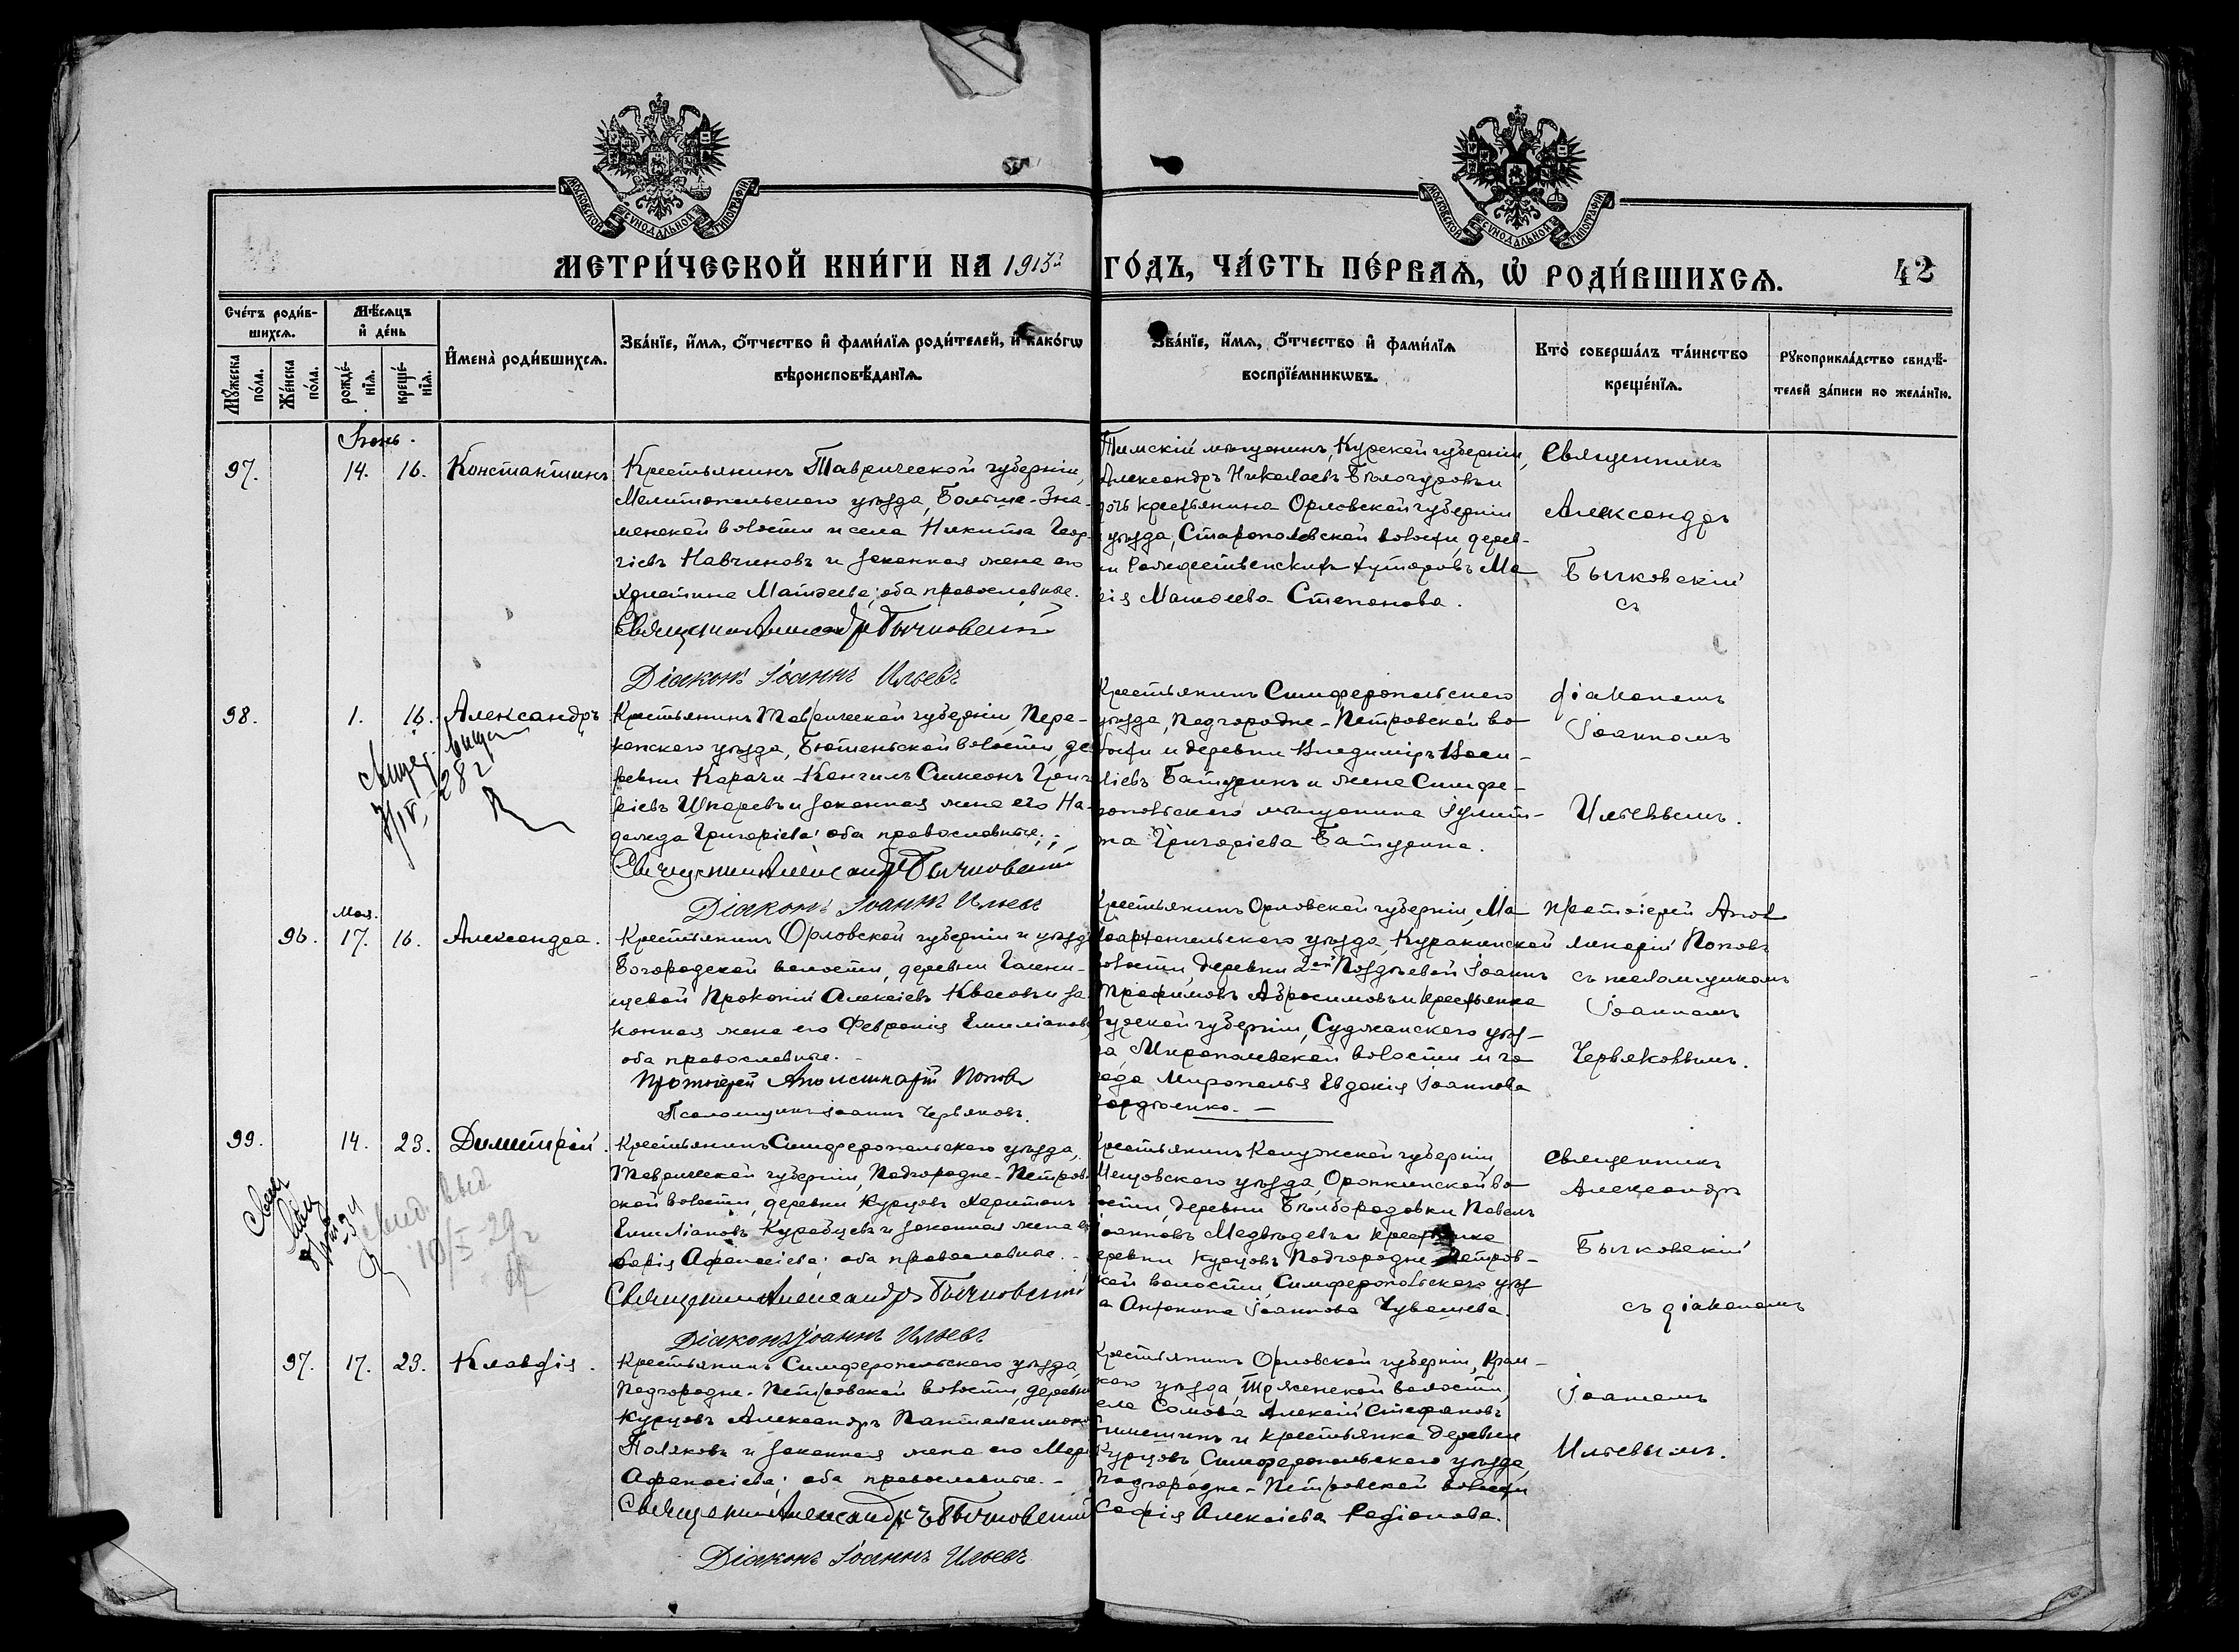 МОСКОВСКОЙ СѴНОДАЛЬНОЙ ТИПОГРАФІИ
МОСКОВСКОЙ СѴНОДАЛЬНОЙ ТИПОГРАФІИ
МЕТРИ́ЧЕСКОЙ КНИ́ГИ НА 1913й ГО́ДЪ, ЧА́СТЬ ПЕ́РВАѦ, Ѡ҆ РОДИ́ВШИХСѦ. 42
Сче́тъ роди́в-
шихсѧ.
Мѣ́сѧцъ
и҆ де́нь
Мꙋ́жеска по́ла.
Же́нска по́ла.
рожде́-
нїѧ.
креще́-
нїѧ.
И҆мена̀ роди́вшихсѧ.
Зва́нїе, и҆́мѧ, ѻ҆́тчество и҆ фами́лїѧ роди́телей, и҆ како́гѡ
вѣроисповѣ́данїѧ.
Зва́нїе, и҆́мѧ, ѻ҆́тчество и҆ фами́лїѧ
воспрїе́мникѡвъ.
Кто̀ соверша́лъ та́инство
креще́нїѧ.
Рꙋкоприкла́дство свидѣ́-
телей за́писи по жела́нїю.
Іюнь.
97. 14. 16. Константинъ
Крестьянинъ Таврической губерніи,
Мелитопольскаго уѣзда, Больше-Зна-
менской волости и села Никита Геор-
гіевъ Навчиновъ и законная жена его
Христина Матѳеева; оба православные.
Священникъ Александръ Бычковскій
Діаконъ Іоаннъ Ильевъ
Тимскій мѣщанинъ, Курской губерніи,
Александръ Николаевъ Бѣлогуровъ и
дочь крестьянина Орловской губерніи
и уѣзда, волости, дерев-
ни Рождественскихъ хуторовъ Ма
рія Матѳеева Степанова.
Священникъ
Александръ
Бычковскій
съ
98. 1. 16. Александръ
Крестьянинъ Таврической губерніи, Пере-
копскаго уѣзда, Бютеньской волости, де
ревни Карачи-Кангилъ Симеонъ Григо
ріевъ Шкаревъ и законная жена его На-
дежда Григоріева; оба православные.
Священникъ Александръ Бычковскій
Діаконъ Іоаннъ Ильевъ
Крестьянинъ Симферопольскаго
уѣзда, Подгородне-Петровской во
лости и деревни Владиміръ Васи-
ліевъ Батуринъ и жена Симфе-
ропольскаго мѣщанина Іулит-
та Григоріева Батурина.
діакономъ
Іоанномъ
Ильевымъ.
28 г
Мая.
96. 17. 16. Александра.
Крестьянинъ Орловской губерніи и уѣзда
Богородской волости, деревни Голени-
щевой Прокопій Алексіевъ Квасовъ и за
конная жена его Февронія Емиліанова
оба православные.
Протоіерей Аполлинарій Поповъ
Псаломщикъ Іоаннъ Червяковъ.
Крестьянинъ Орловской губерніи, Ма
лоархангельскаго уѣзда, Куракинской
волости деревни 2ой Поздѣевой Іоаннъ
Трофимовъ Абросимовъ и крестьянка
Курской губерніи, Суджанскаго уѣз-
да Миропольской волости и го
рода Мирополья Евдокія Іоаннова
Гордіенко.
Протоіерей Апол
линарій Поповъ
съ псаломщикомъ
Іоанномъ
Червяковымъ.
99. 14. 23. Димитрій.
Крестьянинъ Симферопольскаго уѣзда,
Таврической губерніи, Подгородне-Петров
ской волости, деревни Курцовъ Харитонъ
Емиліановъ Курабцевъ и законная жена его
Марія Аѳанасіева; оба православные.
Священникъ Александръ Бычковскій
Діаконъ Іоаннъ Ильевъ
Крестьянинъ Калужской губерніи,
Мещовскаго уѣзда, во
лости, деревни Бѣлбородовки Павелъ
Іоанновъ Медвѣдевъ и крестьянка
деревни Курцовъ Подгородне-Петров-
ской волости, Симферопольскаго уѣз
да Антонина Іоаннова Чувашева.
Священникъ
Александръ
Бычковскій
съ діакономъ
10/X-29 г
97. 17. 23. Клавдія.
Крестьянинъ Симферопольскаго уѣзда,
Подгородне-Петровской волости, деревни
Курцовъ Александръ Пантелеимоновъ
Поляковъ и законная жена его Марія
Аѳанасіева; оба православные.
Священникъ Александръ Бычковскій
Діаконъ Іоаннъ Ильевъ
Крестьянинъ Орловской губерніи, Кром-
скаго уѣзда, волости,
села Сомова Алексій Стефановъ
и крестьянка деревни
Курцовъ Симферопольскаго уѣзда,
Подгородне-Петровской волости
Софія Алексіева Родіонова.
Іоанномъ
Ильевымъ.